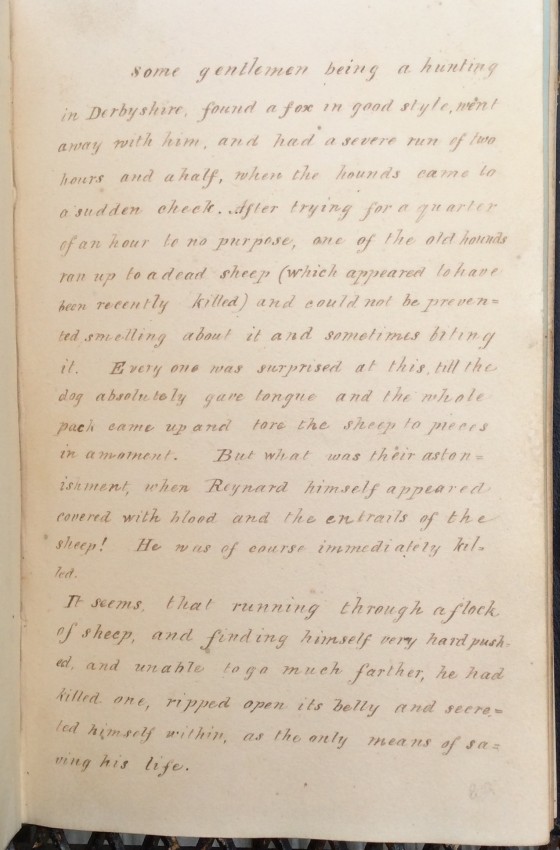 some gentlemen being a hunting
in Derbyshire, found a fox in good style, went
away with him, and had a severe run of two
hours and a half, when the hounds came to
a sudden check. After trying for a quarter
of an hour to no purpose, one of the old hounds
ran up to a dead sheep (which appeared to have
been recently killed) and could not be preven=
ted smelling about it and sometimes biting
it. Every one was surprised at this, till the
dog absolutely gave tongue and the whole
pack came up and tore the sheep to pieces
in a moment. But what was their aston=
ishment, when Reynard himself appeared
covered with blood and the entrails of the
sheep! He was of course immediately kil=
led.
It seems, that running through a flock
of sheep, and finding himself very hard push=
ed, and unable to go much farther, he had
killed one, ripped open its belly and secre=
ted himself within, as the only means of sa=
ving his life.